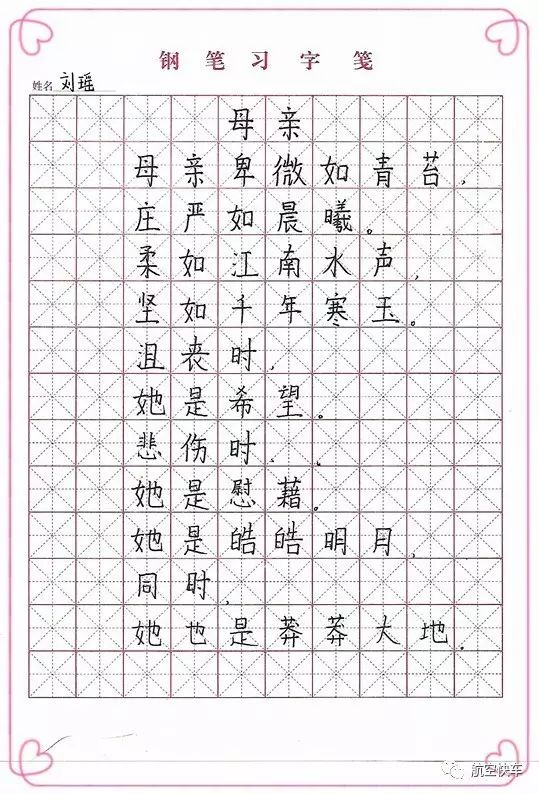 钢笔习字笺
姓名 刘瑶
母亲
母亲卑微如青苔，
庄严如晨曦。
柔如江南水声，
坚如千年寒玉。
沮丧时，
她是希望。
悲伤时，
她是慰藉。
她是皓皓明月，
同时，
她也是莽莽大地。
航空快车